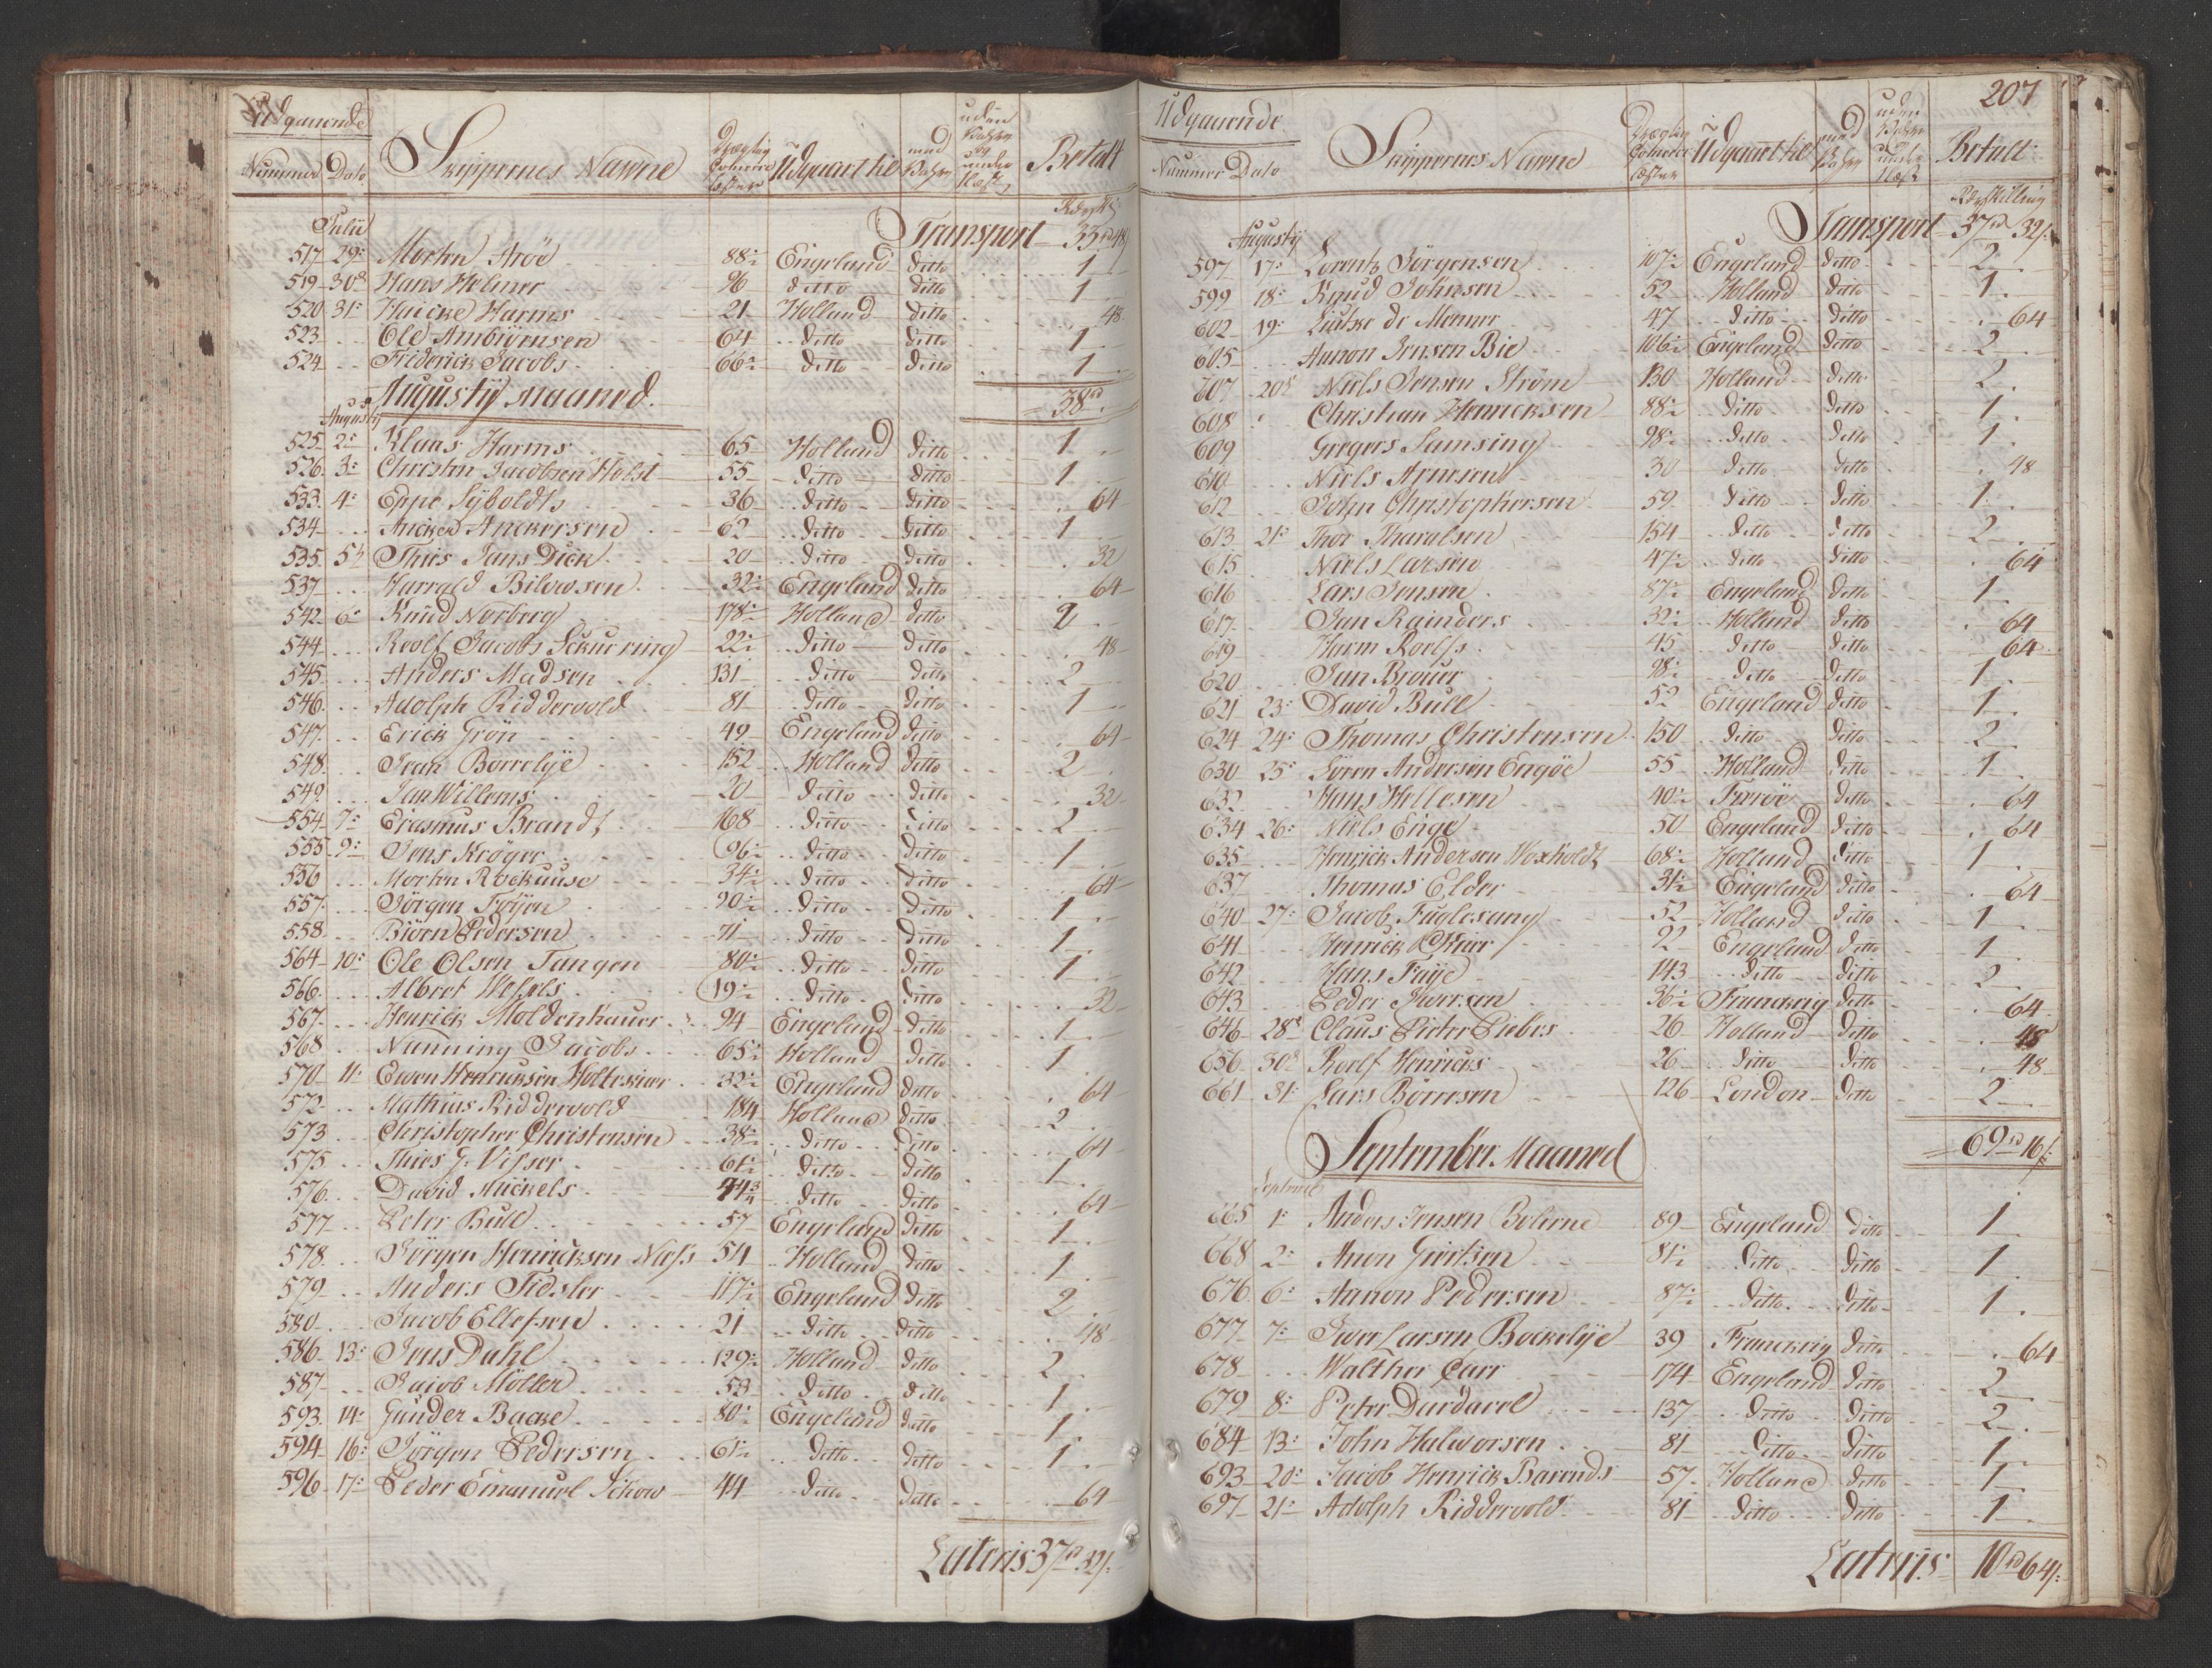 Udgaaende
Nummer Dato Skippernes Nawne Drægtig Comerce læster Udgaaet til med uden og under Betalt
Transport 33 rd 48
Julii
517 29: Morten Aröe 88½ Engeland ditto 1
519 30 Hans Helmer 96 ditto ditto 1
520 31: Haicke Harms 21 Holland ditto 48
523 Ole Ambiörnsen 64 ditto ditto 1
524 Friderick Jacobs 66½ ditto ditto 1
38 rd
Augustij Maaned
Augustij
525 2: Klaas Harms 65 Holland ditto 1
526 3: Christen Jacobsen Holst 55 ditto ditto 1
533 4: Eppe Sÿboldts 36 ditto ditto 64
534 Ancker Anckersen 62 ditto ditto 1
535 5 Thies Jans Dick 20 ditto ditto 32
537 Harrald Bilowsen 32½ Engeland ditto 64
542 6: Knud Norberg 178½ Holland ditto 2
544 Roolf Jacobs Schuerring 22½ ditto ditto 48
545 Anders Madsen 131 ditto ditto 2
546 Adolph Riddervold 81 ditto ditto 1
547 Erick Grön 49 Engeland ditto 64
548 Ivar Borrelÿe 152 Holland ditto 2
549 Jan Willems 20 ditto ditto 32
554 7: Erasmus Brandt 168 ditto ditto 2
555 9: Jens Kröger 96½ ditto ditto 1
556 Morten Rockuuse 34½ ditto ditto 64
557 Jörgen Foÿen 90½ ditto ditto 1
558 Biörn Pedersen 71 ditto ditto 1
564 10: Ole Olsen Tangen 80½ ditto ditto 1
566 Albret Wessels 19½ ditto ditto 32
567 Henrick Moldenhauer 94 Engeland ditto 1
568 Nanning Jacobs 65½ Holland ditto 1
570 11: Ewen Henricksen Holtesiær 32½ Engeland ditto 64
572 Mathias Riddervold 184 Holland ditto 2
573 Christopher Christensen 38½ ditto ditto 64
575 Thies G: Visser 61½ ditto ditto 1
576 David Mickels 44¾ ditto ditto 64
577 Peter Bull 57 Engeland ditto 1
578 Jörgen Henricksen Næss 54 Holland ditto 1
579 Anders Fidsler 117½ Engeland ditto 2
580 Jacob Ellefsen 21 ditto ditto 48
586 13: Jens Dahl 129½ Holland ditto 2
587 Jacob Möller 53 ditto ditto 1
593 14: Gunder Backe 80½ Engeland ditto 1
594 16: Jörgen Pedersen 61½ ditto ditto 1
596 17: Peder Emanuel Schow 44 ditto ditto 64
Lateris 37 rd 32/:
207
Udgaaende
Nummer Dato Skippernes Nawne Drægtig Comerce læster Udgaaet til med uden under Betalt
Rdr Skilling
Transport 37 rd 32/:
Augustij
597 17: Lorentz Jörgensen 107½ Engeland ditto 2
599 18: Knud Johnsen 52 Holland ditto 1
602 19: Luitzer de Memer 47 ditto ditto 64
605 Aanon Jensen Bie 106½ Engeland ditto 2
607 20 Niels Jensen Ström 130 Holland ditto 2
608 Christian Henricksen 88½ ditto ditto 1
609 Gregers Samsing 98½ ditto ditto 1
610 Niels Arnesen 30 ditto ditto 48
612 John Christophersen 59 ditto ditto 1
613 21: Thor Tharalsen 154 ditto ditto 2
615 Niels Larsen 47½ ditto ditto 64
616 Lars Jensen 87½ Engeland ditto 1
617 Jan Rainders 32½ Holland ditto 64
619 Harm Roelfs 45 ditto ditto 64
620 Jan Brouer 98½ ditto ditto 1
621 23: David Bull 52 Engeland ditto 1
624 24: Thomas Christensen 150 ditto ditto 2
630 25: Sören Andersen Engöe 55 Holland ditto 1
632 Hans Hellesen 40½ Færöe ditto 64
634 26: Niels Enge 50 Engeland ditto 64
635 Henrick Andersen Woxholdt 68½ Holland ditto 1
637 Thomas Elder 31½ Engeland ditto 64
640 27: Jacob Fuglesang 52 Holland ditto 1
641 Henrick Kiær 92 Engeland ditto 1
642 Hans Faÿe 143 ditto ditto 2
643 Peder Iwersen 36½ Franckrig ditto 64
646 28 Claus Pieter Piebes 26 Holland ditto 48
656 30 Roelf Henricks 26 ditto ditto 48
661 31: Lars Börresen 126 London ditto 2
69 rd 16/:
September Maaned
Septembr
665 1: Anders Jensen Bolærne 89 Engeland ditto 1
668 2: Anon Giertsen 81½ ditto ditto 1
676 6: Aanon Pedersen 87½ ditto ditto 1
677 7: Iwer Larsen Bockelÿe 39 Franckrig ditto 64
678 Walther Carr 174 Engeland ditto 2
679 8: Peter Durdavel 137 ditto ditto 2
684 13: John Halworsen 81 ditto ditto 1
693 20: Jacob Henrick Barends 57 Holland ditto 1
697 21: Adolph Riddervold 81 ditto ditto 1
Lateris 10 rd 64/: